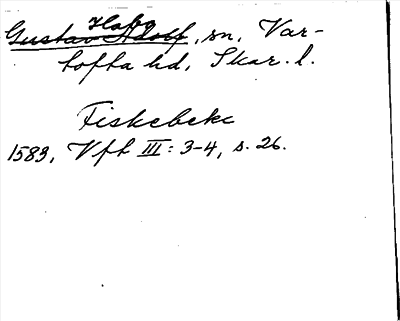 Habo
Gustav Adolf, sn, Var-
tofta hd, Skar. l.
Fiskebekc
1583, Vfh III: 3-4, s. 26.